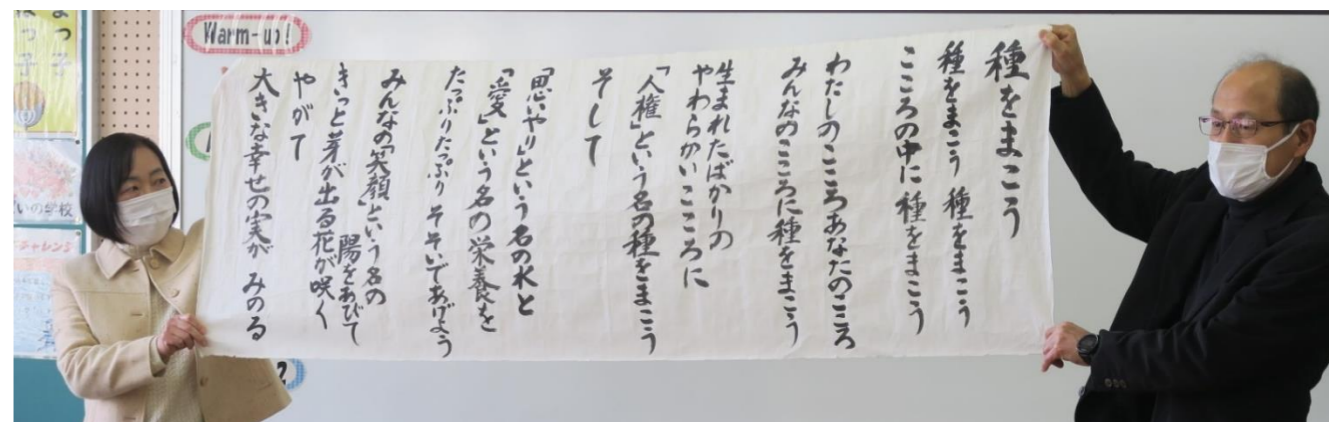 種をまこう
種をまこう 種をまこう
こころの中に 種をまこう
わたしのこころあなたのこころ
みんなのこころに種をまこう
生まれたばかりの
やわらかいこころに
「人権」という名の種をまこう
そして
「思いやり」という名の水と
「愛」という名の栄養を
たっぷりたっぷり そそいであげよう
みんなの「笑顔」という名の
陽をあびて
きっと芽が出る花が咲く
やがて
大きな幸せの実が みのる
Warm-up!
の学校
チャレンジ
2